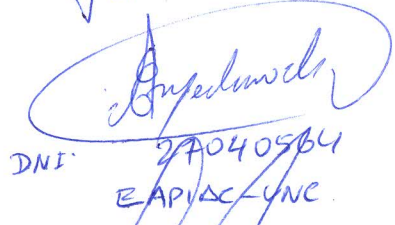 DNI: 27040564
EAPIAC-UNC